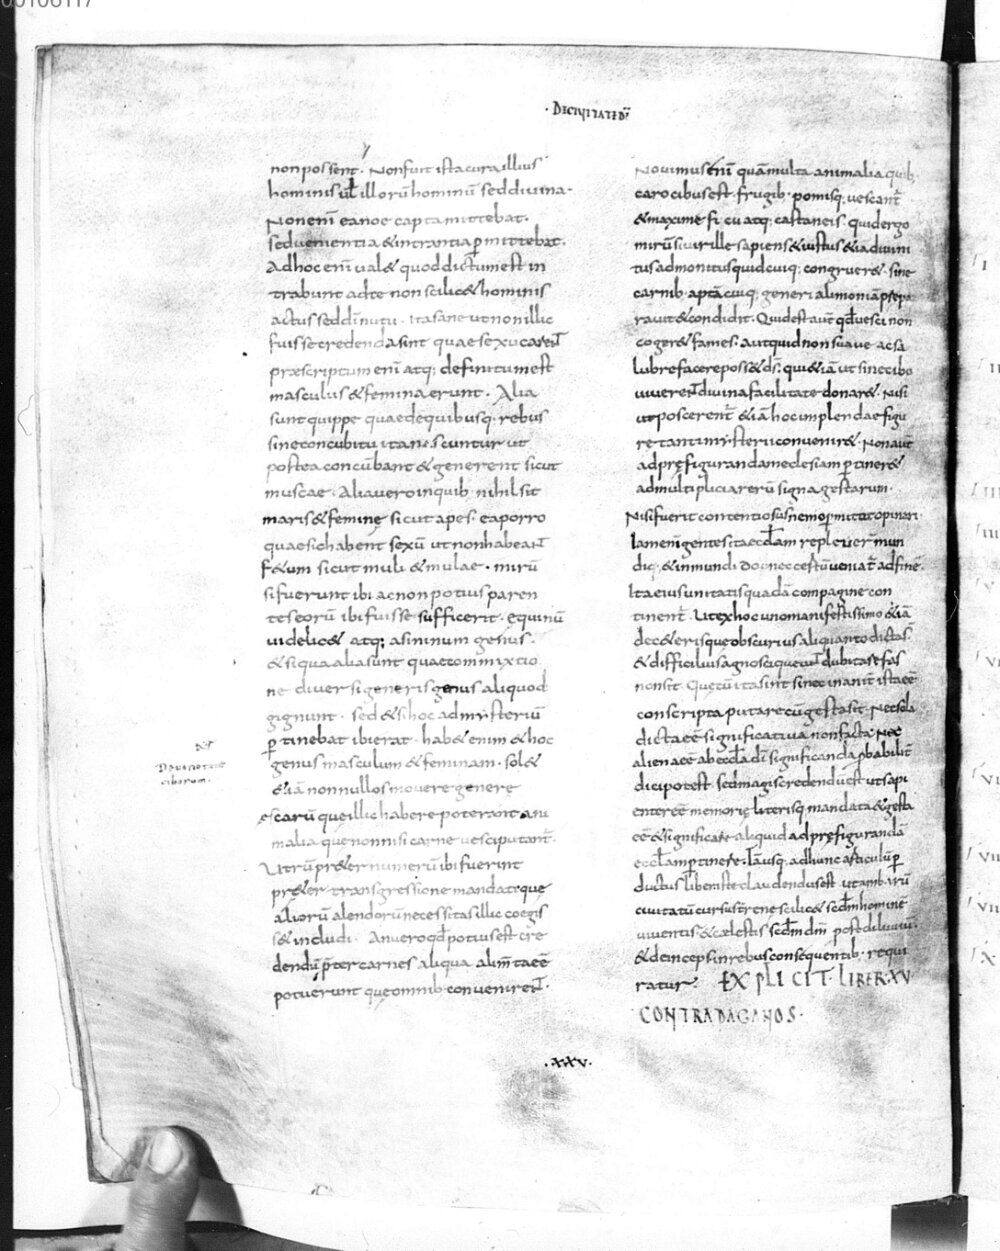 00106117
· DECIVITATEDĪ
non possent. Non fuit ista cura illius
hominis uł illorū hominū sed diuina·
Non enī ea noe capta mittebat·
sed uenientia & intrantia p̄mittebat.
Ad hoc enī ual& quod dictum est in
trabunt ad te non scilic& hominis
actus sed dī nutu. Ita sane ut non illic
fuisse credenda sint quae sexu carent
praescriptum enī atq; definitum est
masculus & femina erunt. Alia
sunt quippe quae de quibusq; rebus
sine concubitu ita nascuntur ut
postea concūbant & generent sicut
muscae. Alia uero in quib; nihil sit
maris & feminę sicut apes. ea porro
quae sic habent sexū ut non habeant
f&um sicut muli & mulae. mirū
si fuerunt ibi ac non potius paren
tes eorū ibi fuisse sufficerit. equinū
uidelic& atq; asininum genus.
& si qua alia sunt quae commixtio
ne diuersi generis genus aliquod
gignunt. sed & si hoc ad mysteriū
p̄tinebat ibi erat. hab& enim & hoc
genus masculum & feminam. sol&
&iā nonnullos mouere genere
escarū que illic habere poterant ani
malia que non nisi carne uesci putant̄.
Utrū pr&er numerū ibi fuerint
pr&er transgressione mandati que
aliorū alendorū necessitas illic coegis
s& includi. An uero qđ potius est cre
dendū p̄ter carnes aliqua alim̄ta eē
potuerunt que omnib; conuenirent.
N̄T
De uarietate
ciborum.
Nouimus enī quā multa animalia quib;
caro cibus est. frugib; pomisq; uescant̄
& maxime ficu atq; castaneis. quid ergo
mirū si uir ille sapiens & iustus &iā diuini
tus admonitus quid cuiq; congruer&. sine
carnib; aptā cuiq; generi alimoniā p̄pa
rauit & condidit. Quid est aut̄ qđ uesci non
coger& fames. aut quid non suaue ac sa
lubre facere poss& dś. qui &iā ut sine cibo
uiuerent diuina facilitate donar&. Nisi
ut poscerent̄ &iā hoc implendae figu
rę tanti mysterii conuenir&. Non aut̄
ad pręfigurandam eclesiam p̄tiner&
ad multiplicia rerū signa gestarum.
Nisi fuerit contentiosus nemo p̄mittit opinari.
Iam enī gentes ita ecclam repleuer̄ mun
diq; & inmundi donec certū ueniat̄ ad finē
Ita eius unitatis quadā compagine con
tinent̄. Ut ex hoc uno manifestissimo &iā
de c&eris que obscurius aliquanto dicta s̄
& difficilius agnosci queunt dubitare fas
non sit. Que cū ita sint si nec inanit̄ ista eē
conscripta putare cū gesta sit. Nec sola
dicta eē significatiua non facta. Nec
aliena eē ab eccla dī significanda p̄babilit̄
dici potest. sed magis credendū est ut sapi
enter eē memorię literisq; mandata & gesta
eē & significare aliquid ad pręfigurandā
ecclam p̄tinere. Iā usq; ad hunc articulū p̄
ductus liber iste claudendus est. ut ambarū
ciuitatū cursus t̄rene scilic& scdm hominē
uiuentis & cęlestis scdm dm̄ post diluuiū.
& deinceps in rebus consequentib; requi
ratur. EXPLICIT· LIBER·XV
CONTRA PAGANOS·
·XXXV·